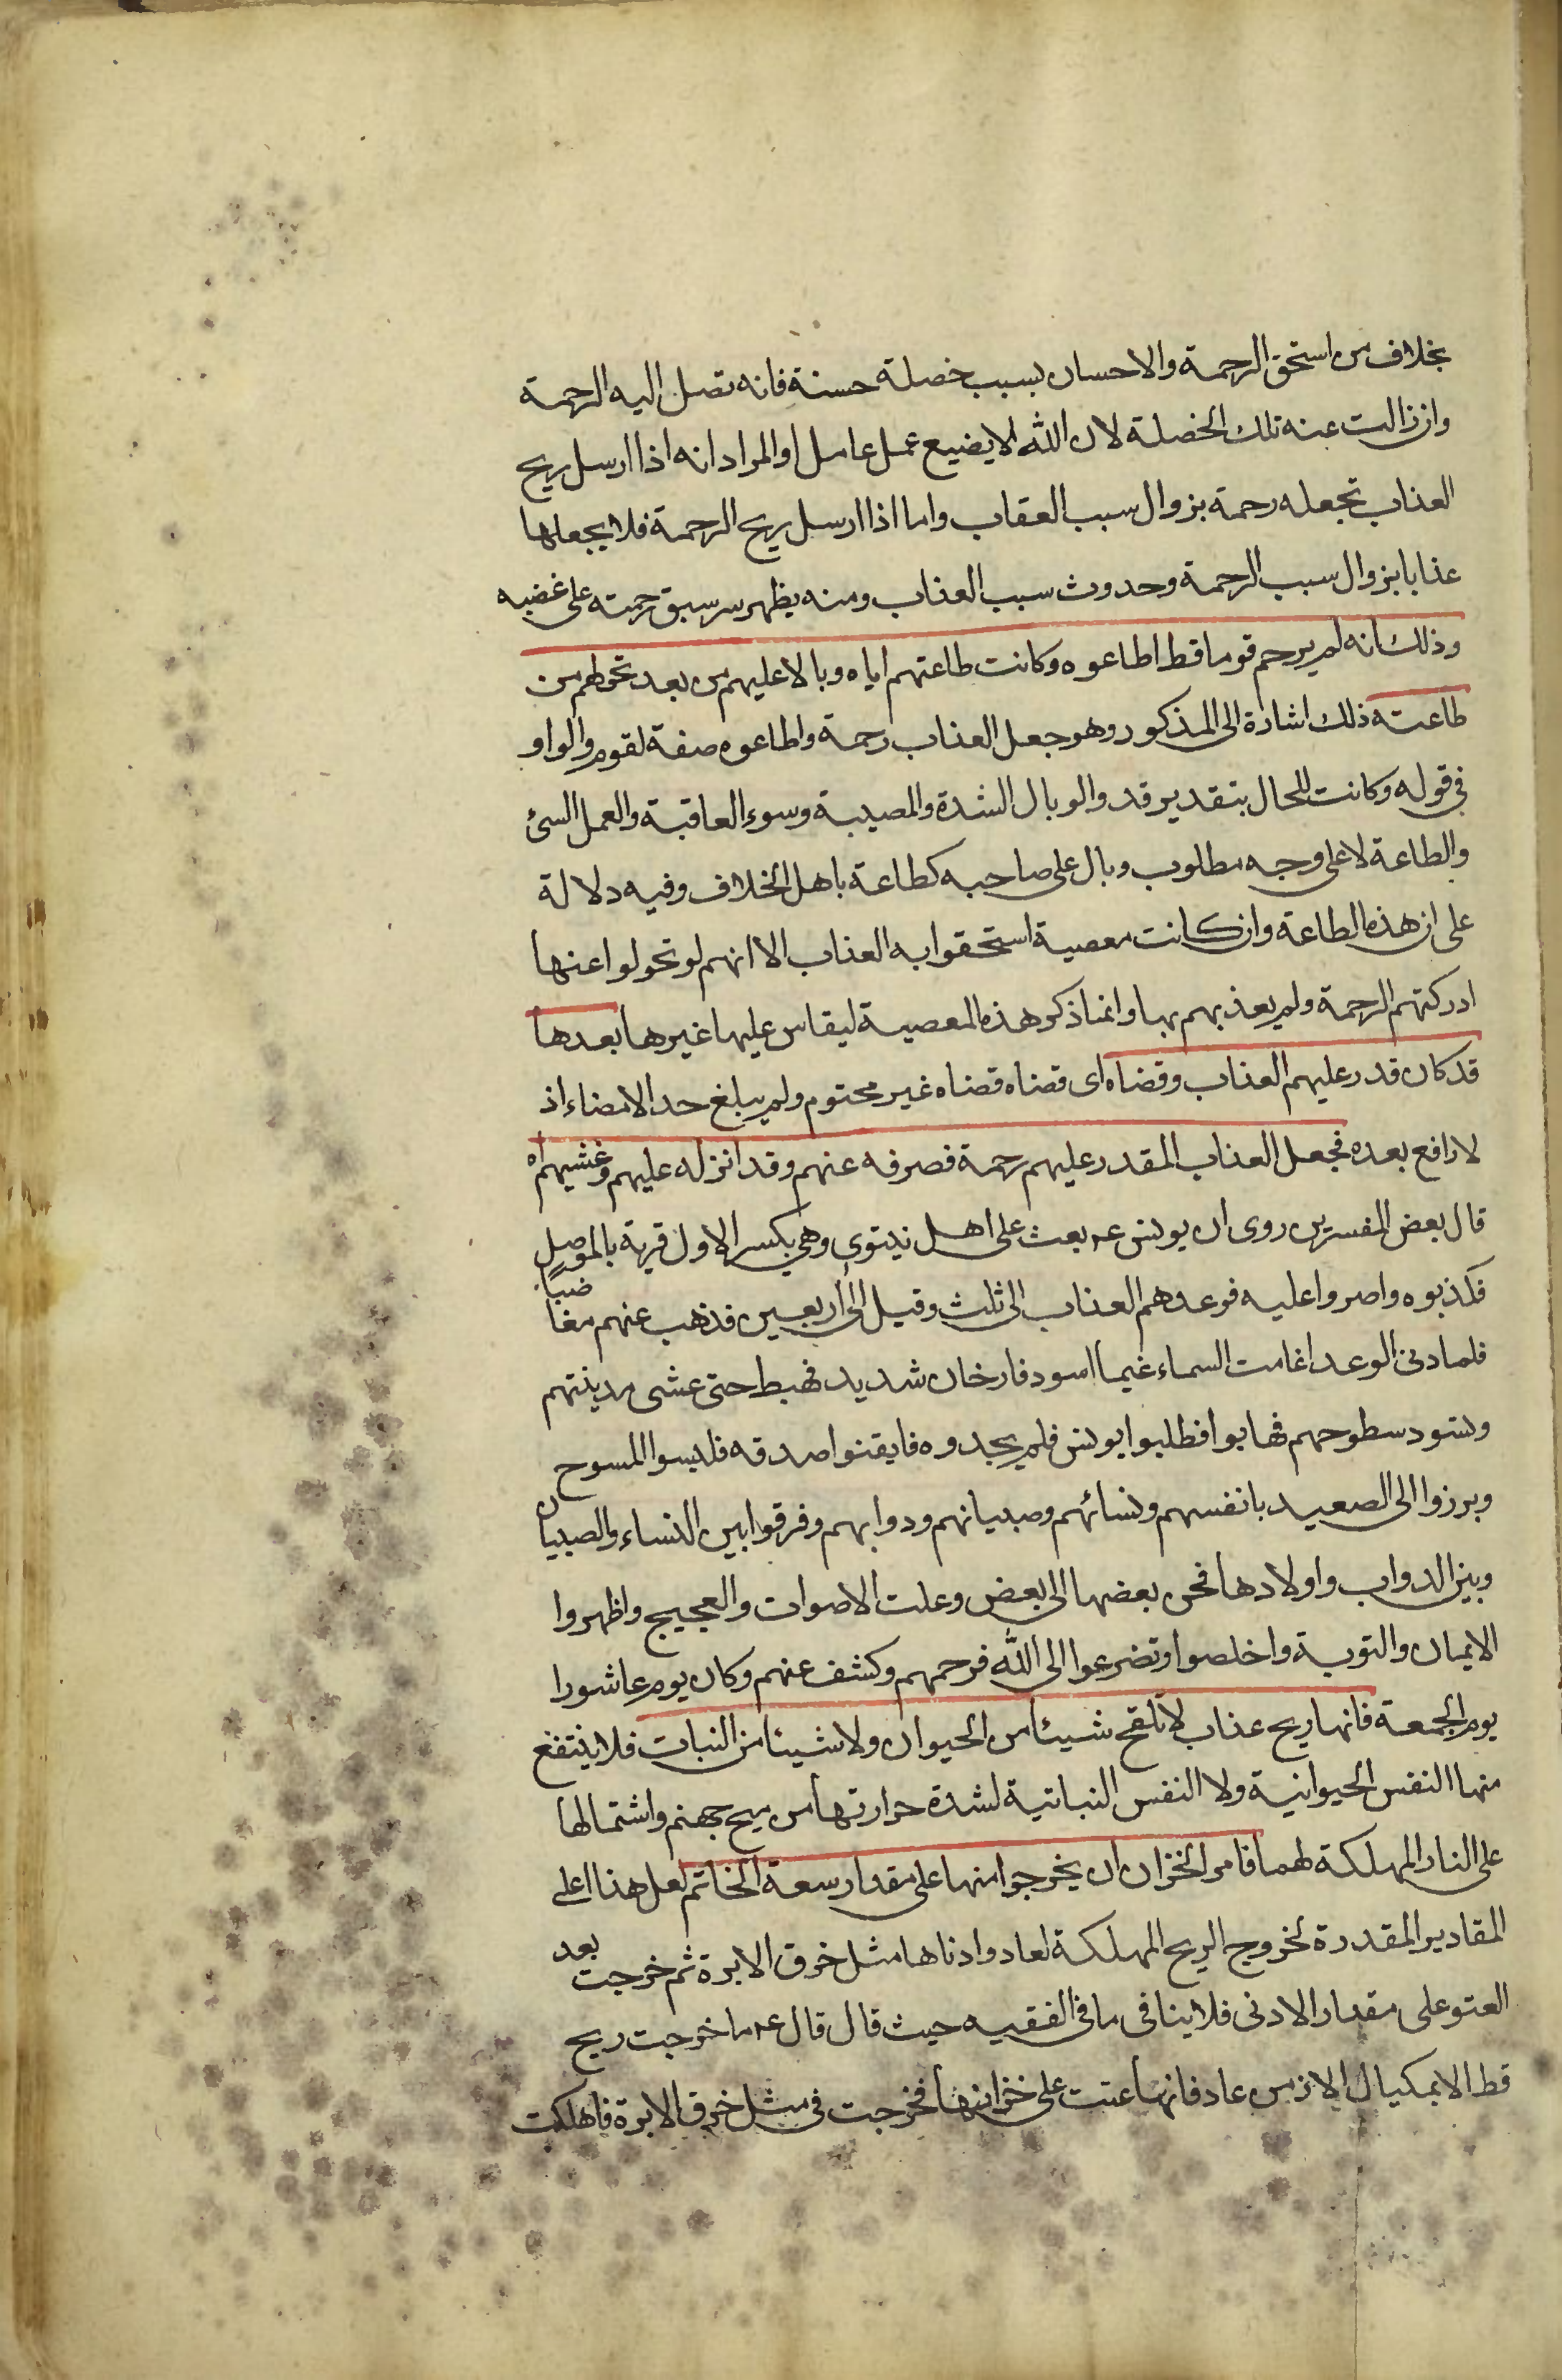 بخلاف من استحق الرحمة والاحسان بسبب خصلة حسنة فانه تصل اليه الرحمة
وان زالت عنه تلك الخصلة لان الله لا يضيع عمل عامل او المراد انه اذا ارسل ريح
العذاب تجعله رحمة بزوال سبب العقاب واما اذا ارسل ريح الرحمة فلا يجعلها
عذابا بزوال سبب الرحمة وحدوث سبب العذاب ومنه يظهر سر سبق رحمته على غضبه
وذلك انه لم يرحم قوما قط اطاعوه وكانت طاعتهم اياه وبالا عليهم من بعد تحولهم من
طاعته ذلك اشارة الى المذكور وهو جعل العذاب رحمة واطاعوه صفة لقوم والواو
في قوله وكانت للحال بتقدير قد والوبال الشدة والمصيبة وسوء العاقبة والعمل السئ
والطاعة لا على وجه مطلوب وبال على صاحبه كطاعة باهل الخلاف وفيه دلالة
على ان هذه الطاعة وان كانت معصية استحقوا به العذاب الا انهم لو تحولوا عنها
ادركتهم الرحمة ولم يعذبهم بها وانما ذكر هذه المعصية ليقاس عليها غيرها بعد ها
قد كان قدر عليهم العذاب وقضاه اى قضاه قضاه غير محتوم ولم يبلغ حد الامضاء اذ
لا رافع بعده فجعل العذاب المقدر عليهم رحمة فصرفه عنهم وقد انزله عليهم وغشيهم اه
قال بعض المفسرين روى ان يونس عه بعث على اهل نينوى وهي بكسر الاول قرية بالموصل
فكذبوه واصروا عليه فوعدهم العذاب الى ثلث وقيل الى اربعين فذهب عنهم مغاضبا
فلما دنى الوعد اغامت السماء غيما اسود فا رخان شديد فهبط حتى عشى مدينتهم
وتسود سطوحهم فهابوا فطلبوا يونس فلم يجدوه فايقنوا صدقه فلبسوا المسوح
وبرزوا الى الصعيد بانفسهم ونسائهم وصبيانهم ودوابهم وفرقوا بين النساء والصبيان
وبين الدواب واولادها فحن بعضها الى بعض وعلت الاصوات والعجيج واظهروا
الايمان والتوبة واخلصوا وتضرعوا الى الله فرحمهم وكشف عنهم وكان يوم عاشورا
يوم الجمعة فانها ريح عذاب لا تلقح شيئا من الحيوان ولا شيئا من النبات فلا ينتفع
منها النفس الحيوانية ولا النفس النباتية لشدة حرارتها من ميح جهنم واشتمالها
على النار المهلكة لهما فامر الخزان ان يخرجوا منها على مقدار سعة الخاتم لعل هذا اعلى
المقادير المقدرة لخروج الريح المهلكة لعاد وادناها مثل خرق الابرة ثم خرجت بعد
العتو على مقدار الادنى فلا ينافى ما فى الفقيه حيث قال قال عه ما خرجت ريح
قط الا بمكيال الا زمن عاد فانها عتت على خزانها فخرجت فى مثل خرق الابرة فاهلكت